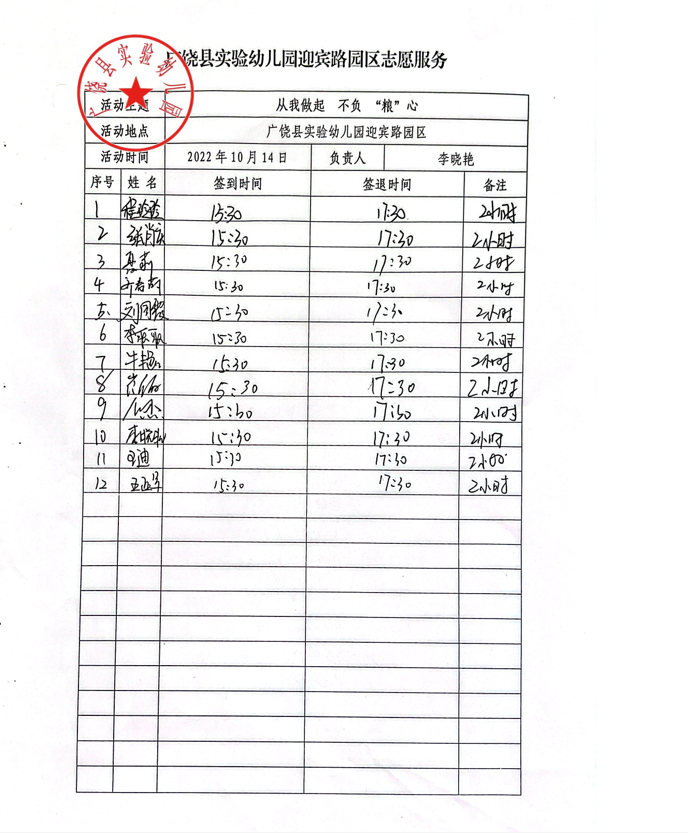 广饶县实验幼儿园
广饶县实验幼儿园迎宾路园区志愿服务
活动主题 从我做起 不负 “粮”心
活动地点 广饶县实验幼儿园迎宾路园区
活动时间 2022年10月14日 负责人 李晓艳
序号 姓名 签到时间 签退时间 备注
1 15:30 17:30 2小时
2 15:30 17:30 2小时
3 15:30 17:30 2小时
4 15:30 17:30 2小时
5. 15:30 17:30 2小时
6 15:30 17:30 2小时
7 15:30 17:30 2小时
8 15:30 17:30 2小时
9 15:30 17:30 2小时
10 15:30 17:30 2小时
11 15:30 17:30
12 15:30 17:30 2小时